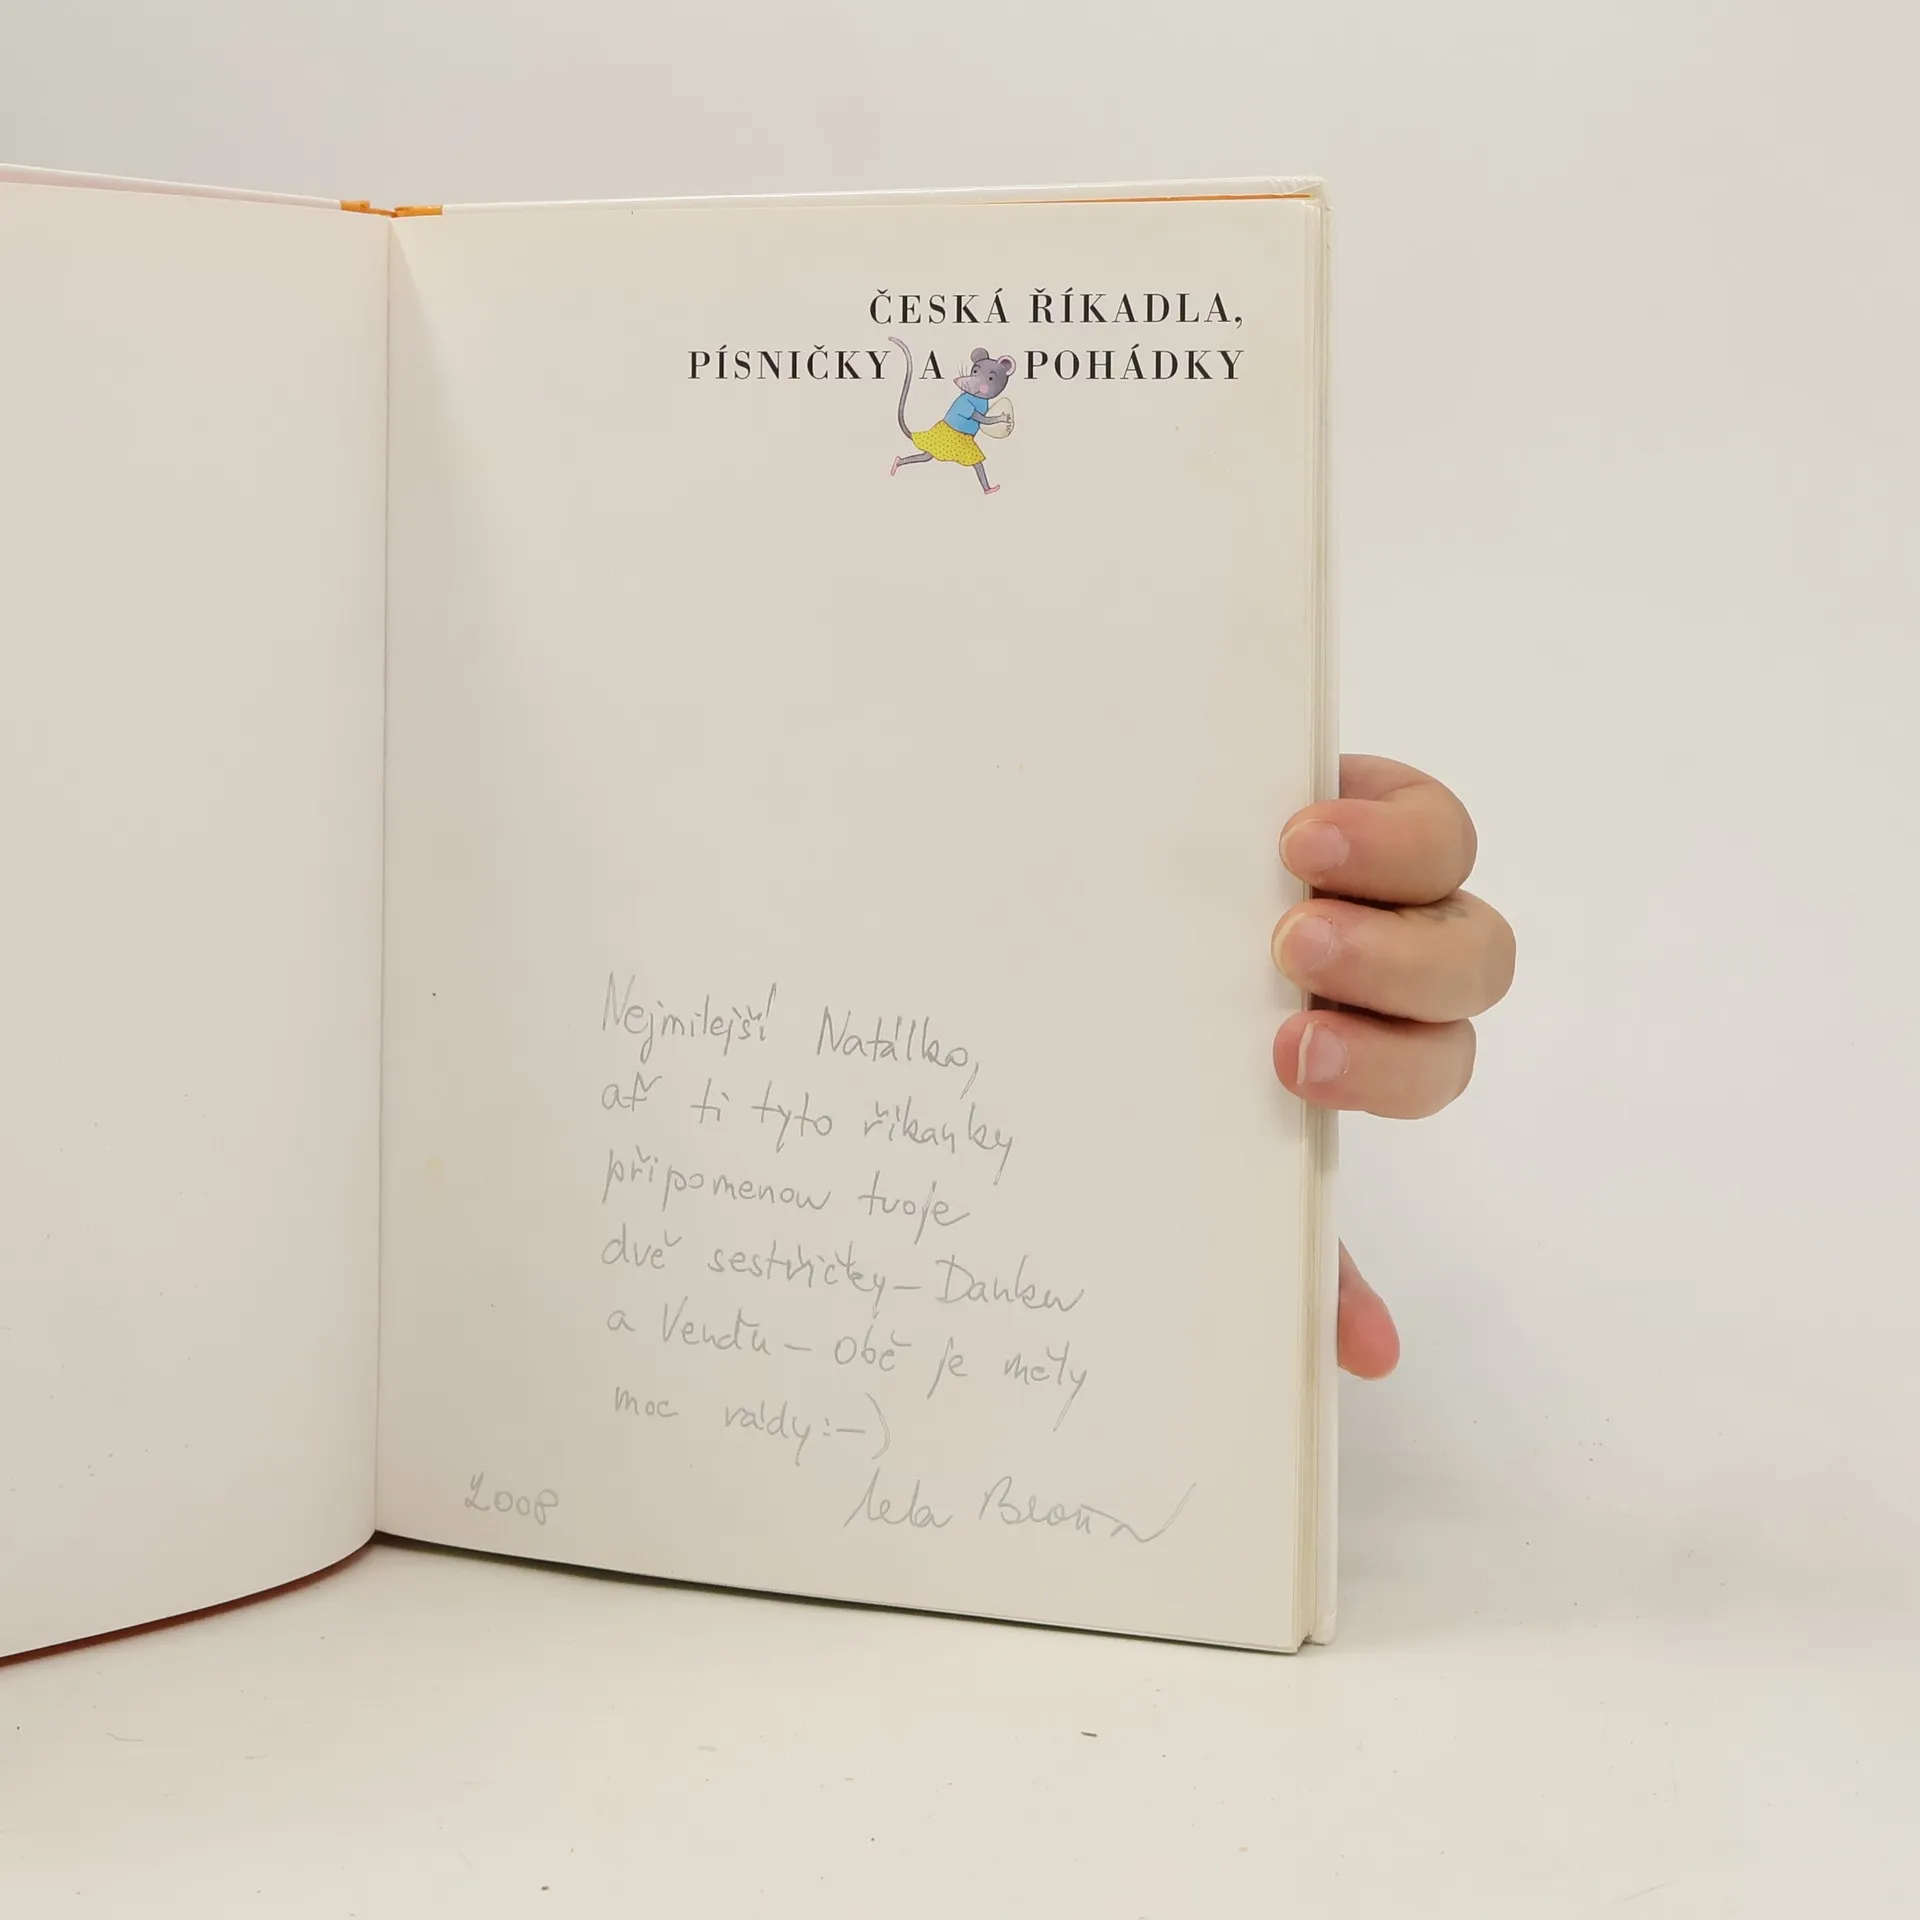 ČESKÁ ŘÍKADLA,
PÍSNIČKY A POHÁDKY
Nejmilejší Natálko,
ať ti tyto říkanky
připomenou tvoje
dvě sestřičky – Danku
a Venďu – Obě je měly
moc rády :-)
2008